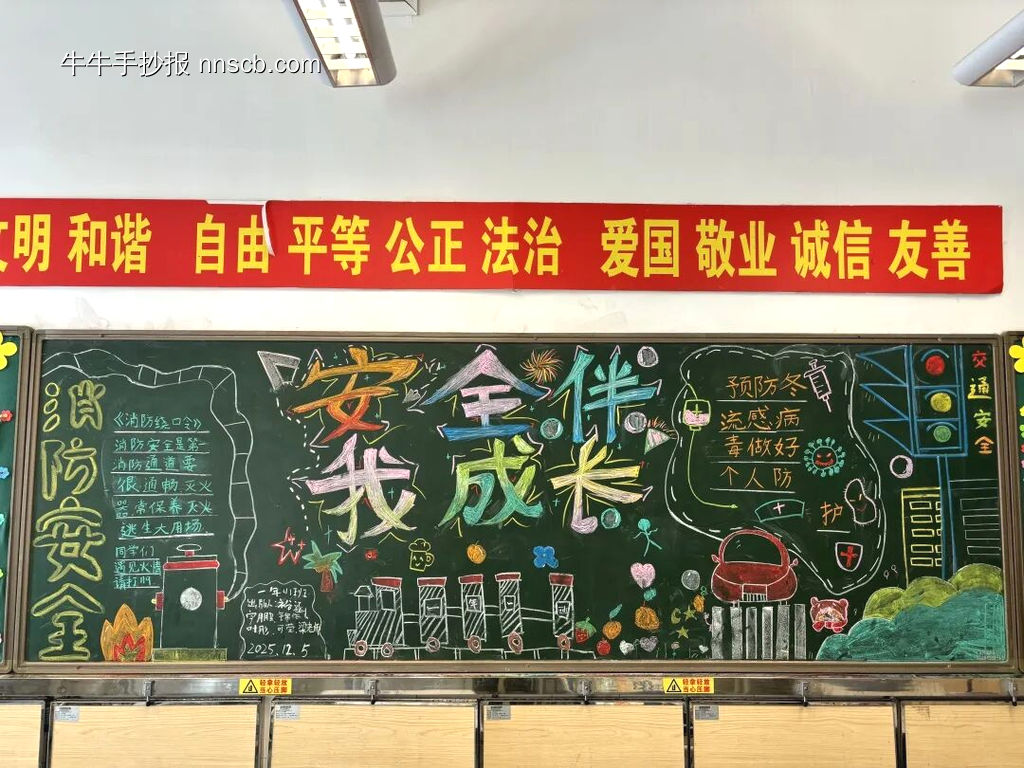 牛牛手抄报 nnscb.com
文明 和谐 自由 平等 公正 法治 爱国 敬业 诚信 友善
消防安全
《消防绕口令》
消防安全是第一
消防通道要
很通畅灭火
器常保养灭火
逃生大用场
同学们
遇见火情
请打119
安全伴
我成长
预防冬
流感病
毒做好
个人防
护
交通安全
2025.12.5
轻拿轻放
当心压脚
轻拿轻放
当心压脚